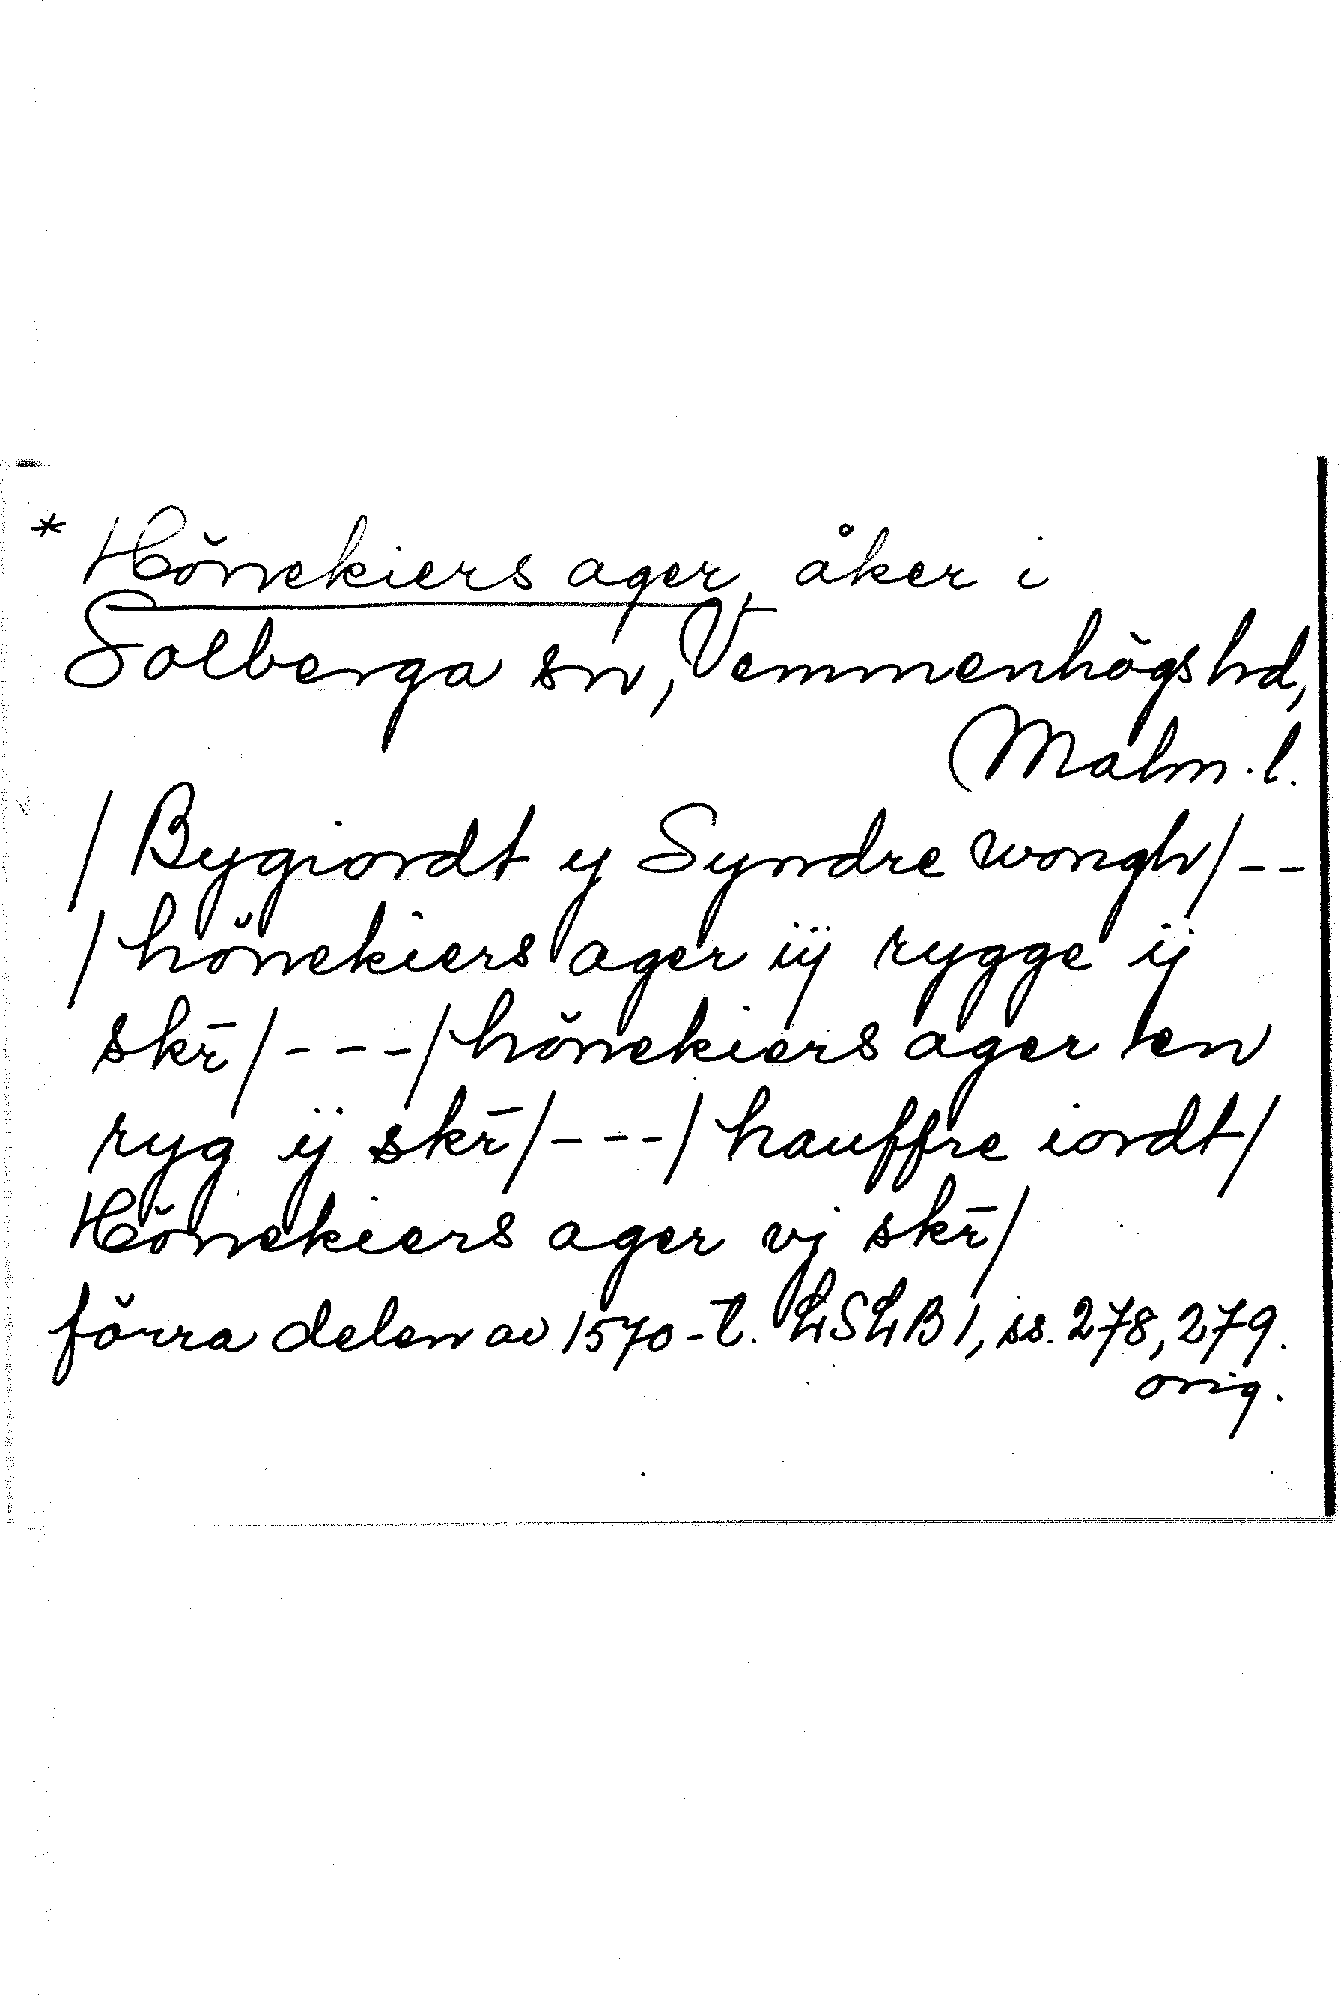 * Hönekiers ager, åker i
Solberga sn, Vemmenhögs hd,
Malm. l.
/ Bygiordt y Syndre wongh/ - -
/ hönekiers ager iÿ rygge ÿ
skr̄/ - - - / hönekiers ager en
ryg ÿ skr̄/ - - - / hauffre iordt/
Hönekiers ager vj skr̄/
förra delen av 1570-t. LSLB 1, ss. 278, 279.
orig.